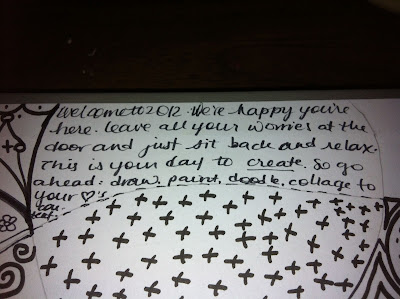 Welcome to 2012. We're happy you're
here. Leave all your worries at the
door and just sit back and relax.
This is your day to create. So go
ahead: draw, paint, doodle, collage to
your ♡'s
con
tent.